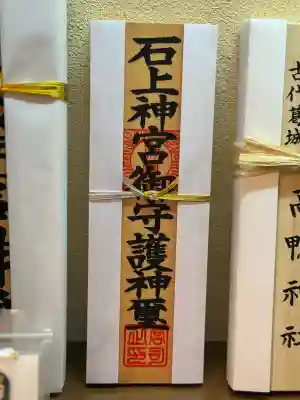 石上神宮御守護神璽
古代葛城
高鴨神社